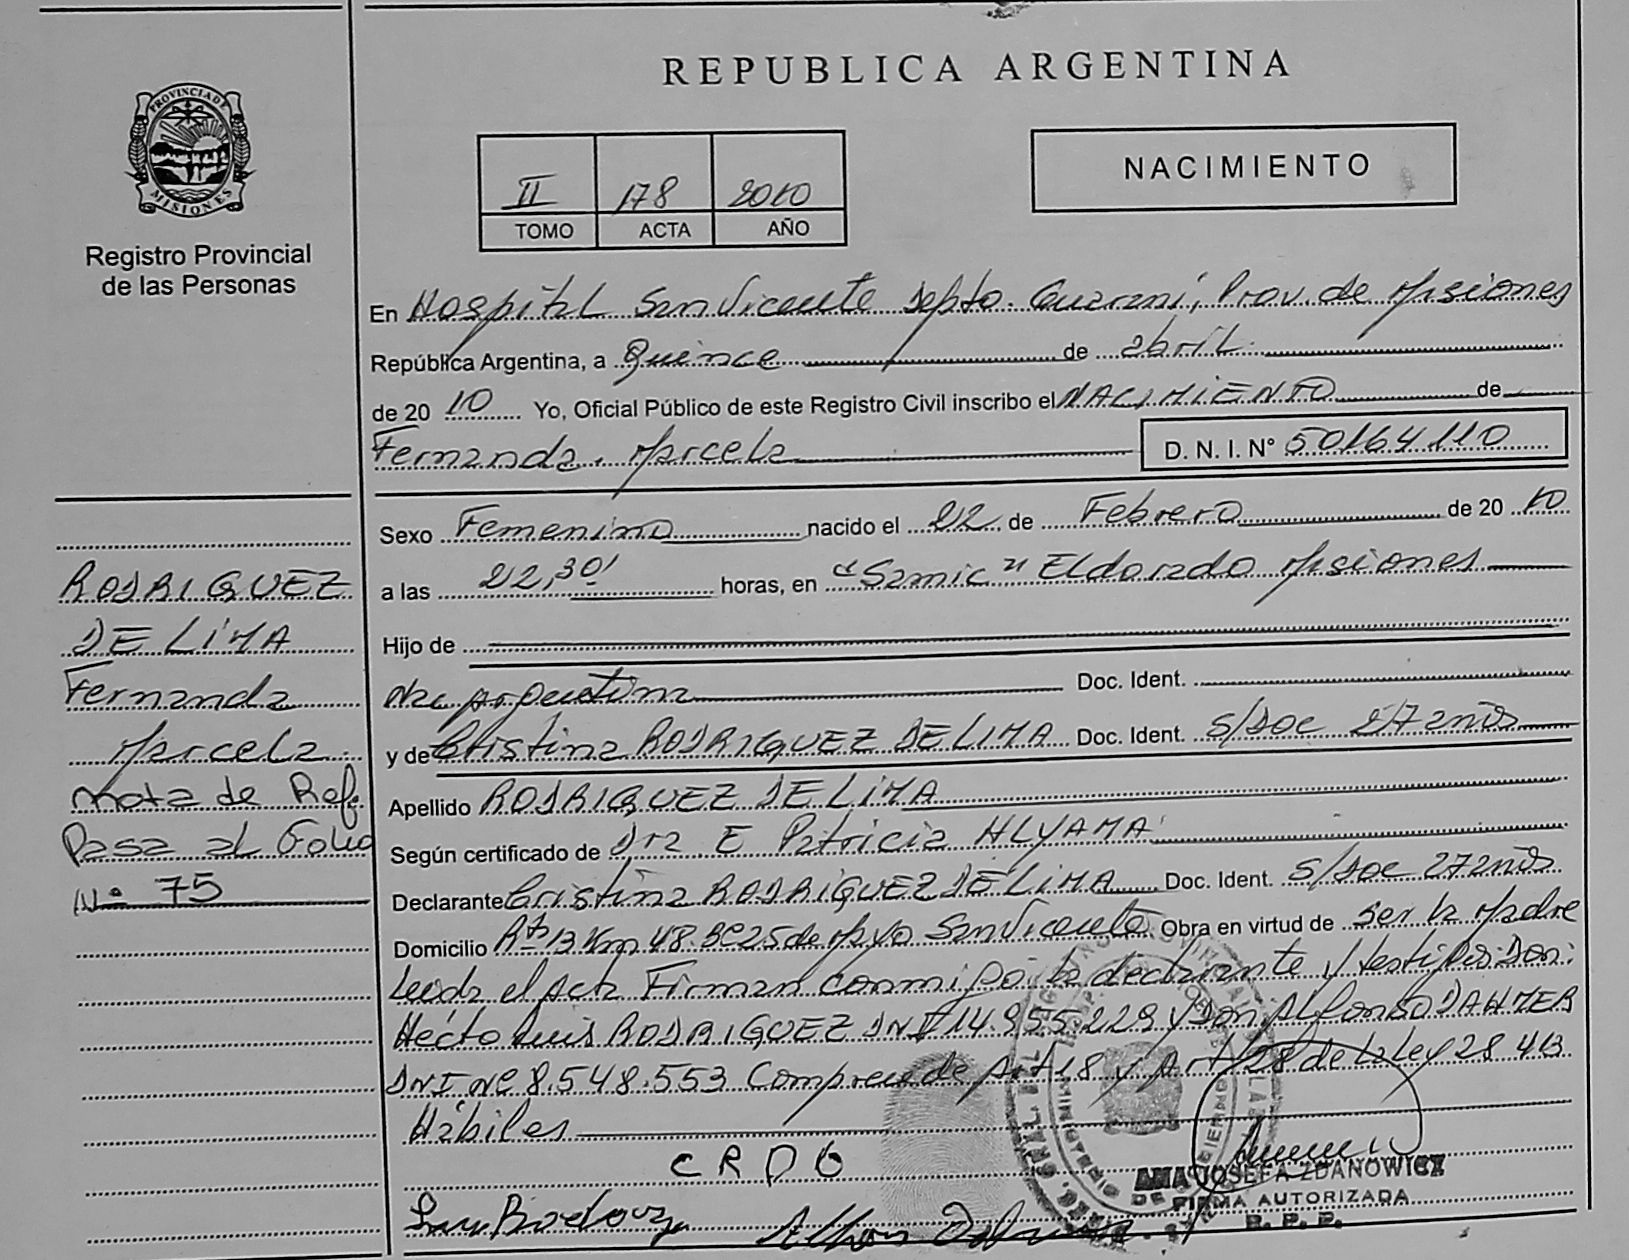 PROVINCIA DE
MISIONES
Registro Provincial
de las Personas
REPUBLICA ARGENTINA
II 178 2010
TOMO ACTA AÑO
NACIMIENTO
En Hospital San Vicente Depto. Guaraní, Prov. de Misiones
República Argentina, a Quince de abril
de 20 10 Yo, Oficial Público de este Registro Civil inscribo el NACIMIENTO de
Fernanda Marcela D. N. I. Nº 50164110
Sexo Femenino nacido el 22 de Febrero de 20 10
a las 22,30' horas, en "Samic" Eldorado Misiones
Hijo de
Nac Argentina Doc. Ident.
y de Cristina RODRIGUEZ DE LIMA Doc. Ident. S/Doc 27 años
Apellido RODRIGUEZ DE LIMA
Según certificado de Dra E Patricia HLYAMA
Declarante Cristina RODRIGUEZ DE LIMA Doc. Ident. S/Doc 27 años
Domicilio Rta 13 Km 48. Bº 25 de Mayo San Vicente Obra en virtud de ser la Madre
Leída el Acta Firman conmigo la declarante y testigos Don:
Hécto Luis RODRIGUEZ DNI 14.955.229 y Don Alfonso DAHMER
DNI Nº 8.548.553 Art 18 y Art 28 de la Ley 28 413
Hábiles
CRDO
ANA JOSEFA ZDANOWICZ
FIRMA AUTORIZADA
R. P. P.
RODRIGUEZ
DE LIMA
Fernanda
Marcela
Nota de Refe
Pasa al Folio
Nº 75